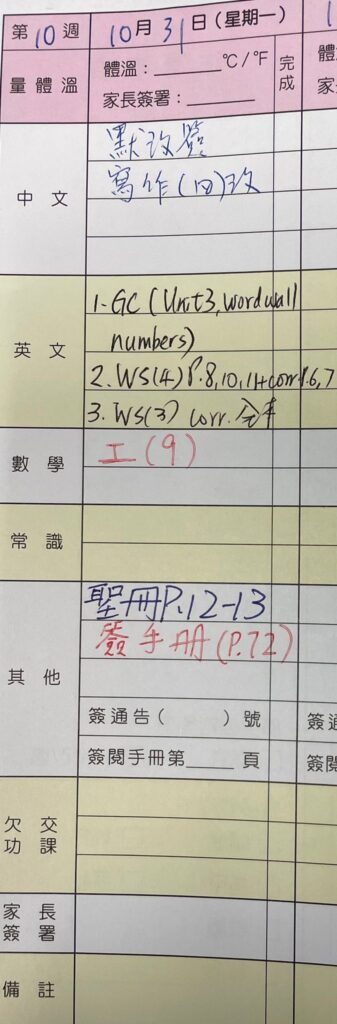 第10週 10月31日(星期一)
量體溫 體溫：______°C/°F 完成
家長簽署：______
中文 默改簽
寫作(四)改
英文 1. GC (Unit3, word wall
numbers)
2. WS(4) P.8,10,11+corr.P.6,7
3. WS(3) corr. 全本
數學 工(9)
常識
其他 聖冊P.12-13
簽手冊(P.72)
簽通告( )號
簽閱手冊第____頁
欠交功課
家長簽署
備註